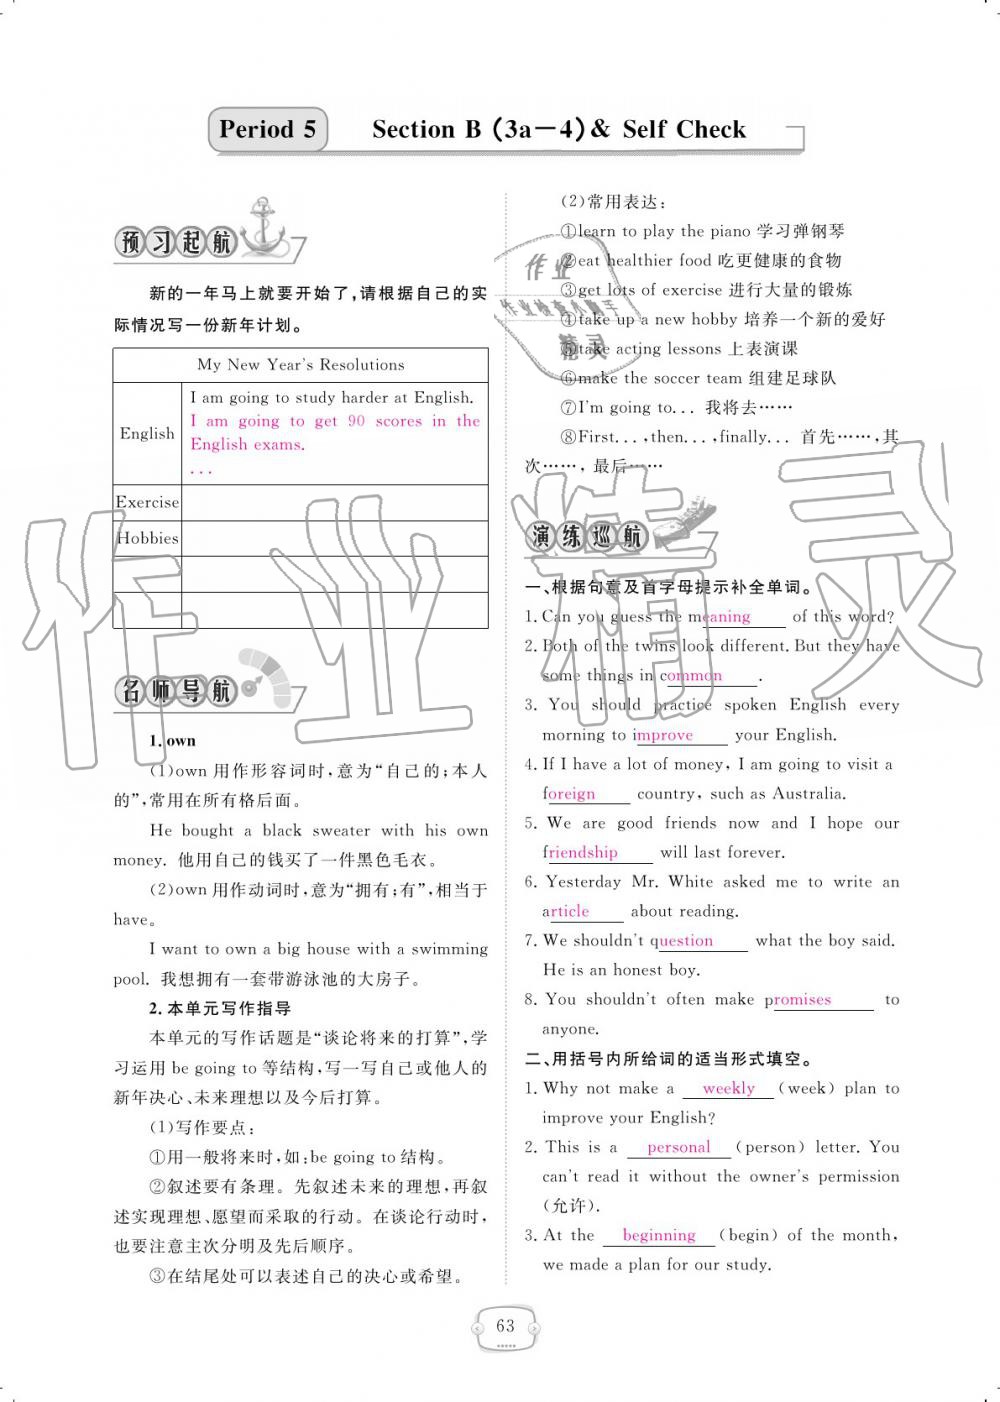 Period 5 Section B (3a—4) & Self Check
预习起航
新的一年马上就要开始了,请根据自己的实
际情况写一份新年计划。
My New Year's Resolutions
English
I am going to study harder at English.
I am going to get 90 scores in the
English exams.
...
Exercise
Hobbies
名师导航
1. own
(1)own 用作形容词时,意为“自己的;本人
的”,常用在所有格后面。
He bought a black sweater with his own
money. 他用自己的钱买了一件黑色毛衣。
(2)own 用作动词时,意为“拥有;有”,相当于
have。
I want to own a big house with a swimming
pool. 我想拥有一套带游泳池的大房子。
2. 本单元写作指导
本单元的写作话题是“谈论将来的打算”,学
习运用 be going to 等结构,写一写自己或他人的
新年决心、未来理想以及今后打算。
(1)写作要点:
①用一般将来时,如:be going to 结构。
②叙述要有条理。先叙述未来的理想,再叙
述实现理想、愿望而采取的行动。在谈论行动时,
也要注意主次分明及先后顺序。
③在结尾处可以表述自己的决心或希望。
(2)常用表达:
①learn to play the piano 学习弹钢琴
②eat healthier food 吃更健康的食物
③get lots of exercise 进行大量的锻炼
④take up a new hobby 培养一个新的爱好
⑤take acting lessons 上表演课
⑥make the soccer team 组建足球队
⑦I'm going to... 我将去……
⑧First...,then...,finally... 首先……,其
次……,最后……
演练巡航
一、根据句意及首字母提示补全单词。
1. Can you guess the meaning of this word?
2. Both of the twins look different. But they have
some things in common.
3. You should practice spoken English every
morning to improve your English.
4. If I have a lot of money, I am going to visit a
foreign country, such as Australia.
5. We are good friends now and I hope our
friendship will last forever.
6. Yesterday Mr. White asked me to write an
article about reading.
7. We shouldn't question what the boy said.
He is an honest boy.
8. You shouldn't often make promises to
anyone.
二、用括号内所给词的适当形式填空。
1. Why not make a weekly (week) plan to
improve your English?
2. This is a personal (person) letter. You
can't read it without the owner's permission
(允许).
3. At the beginning (begin) of the month,
we made a plan for our study.
63
作业
作业检查小助手
精灵
作业精灵